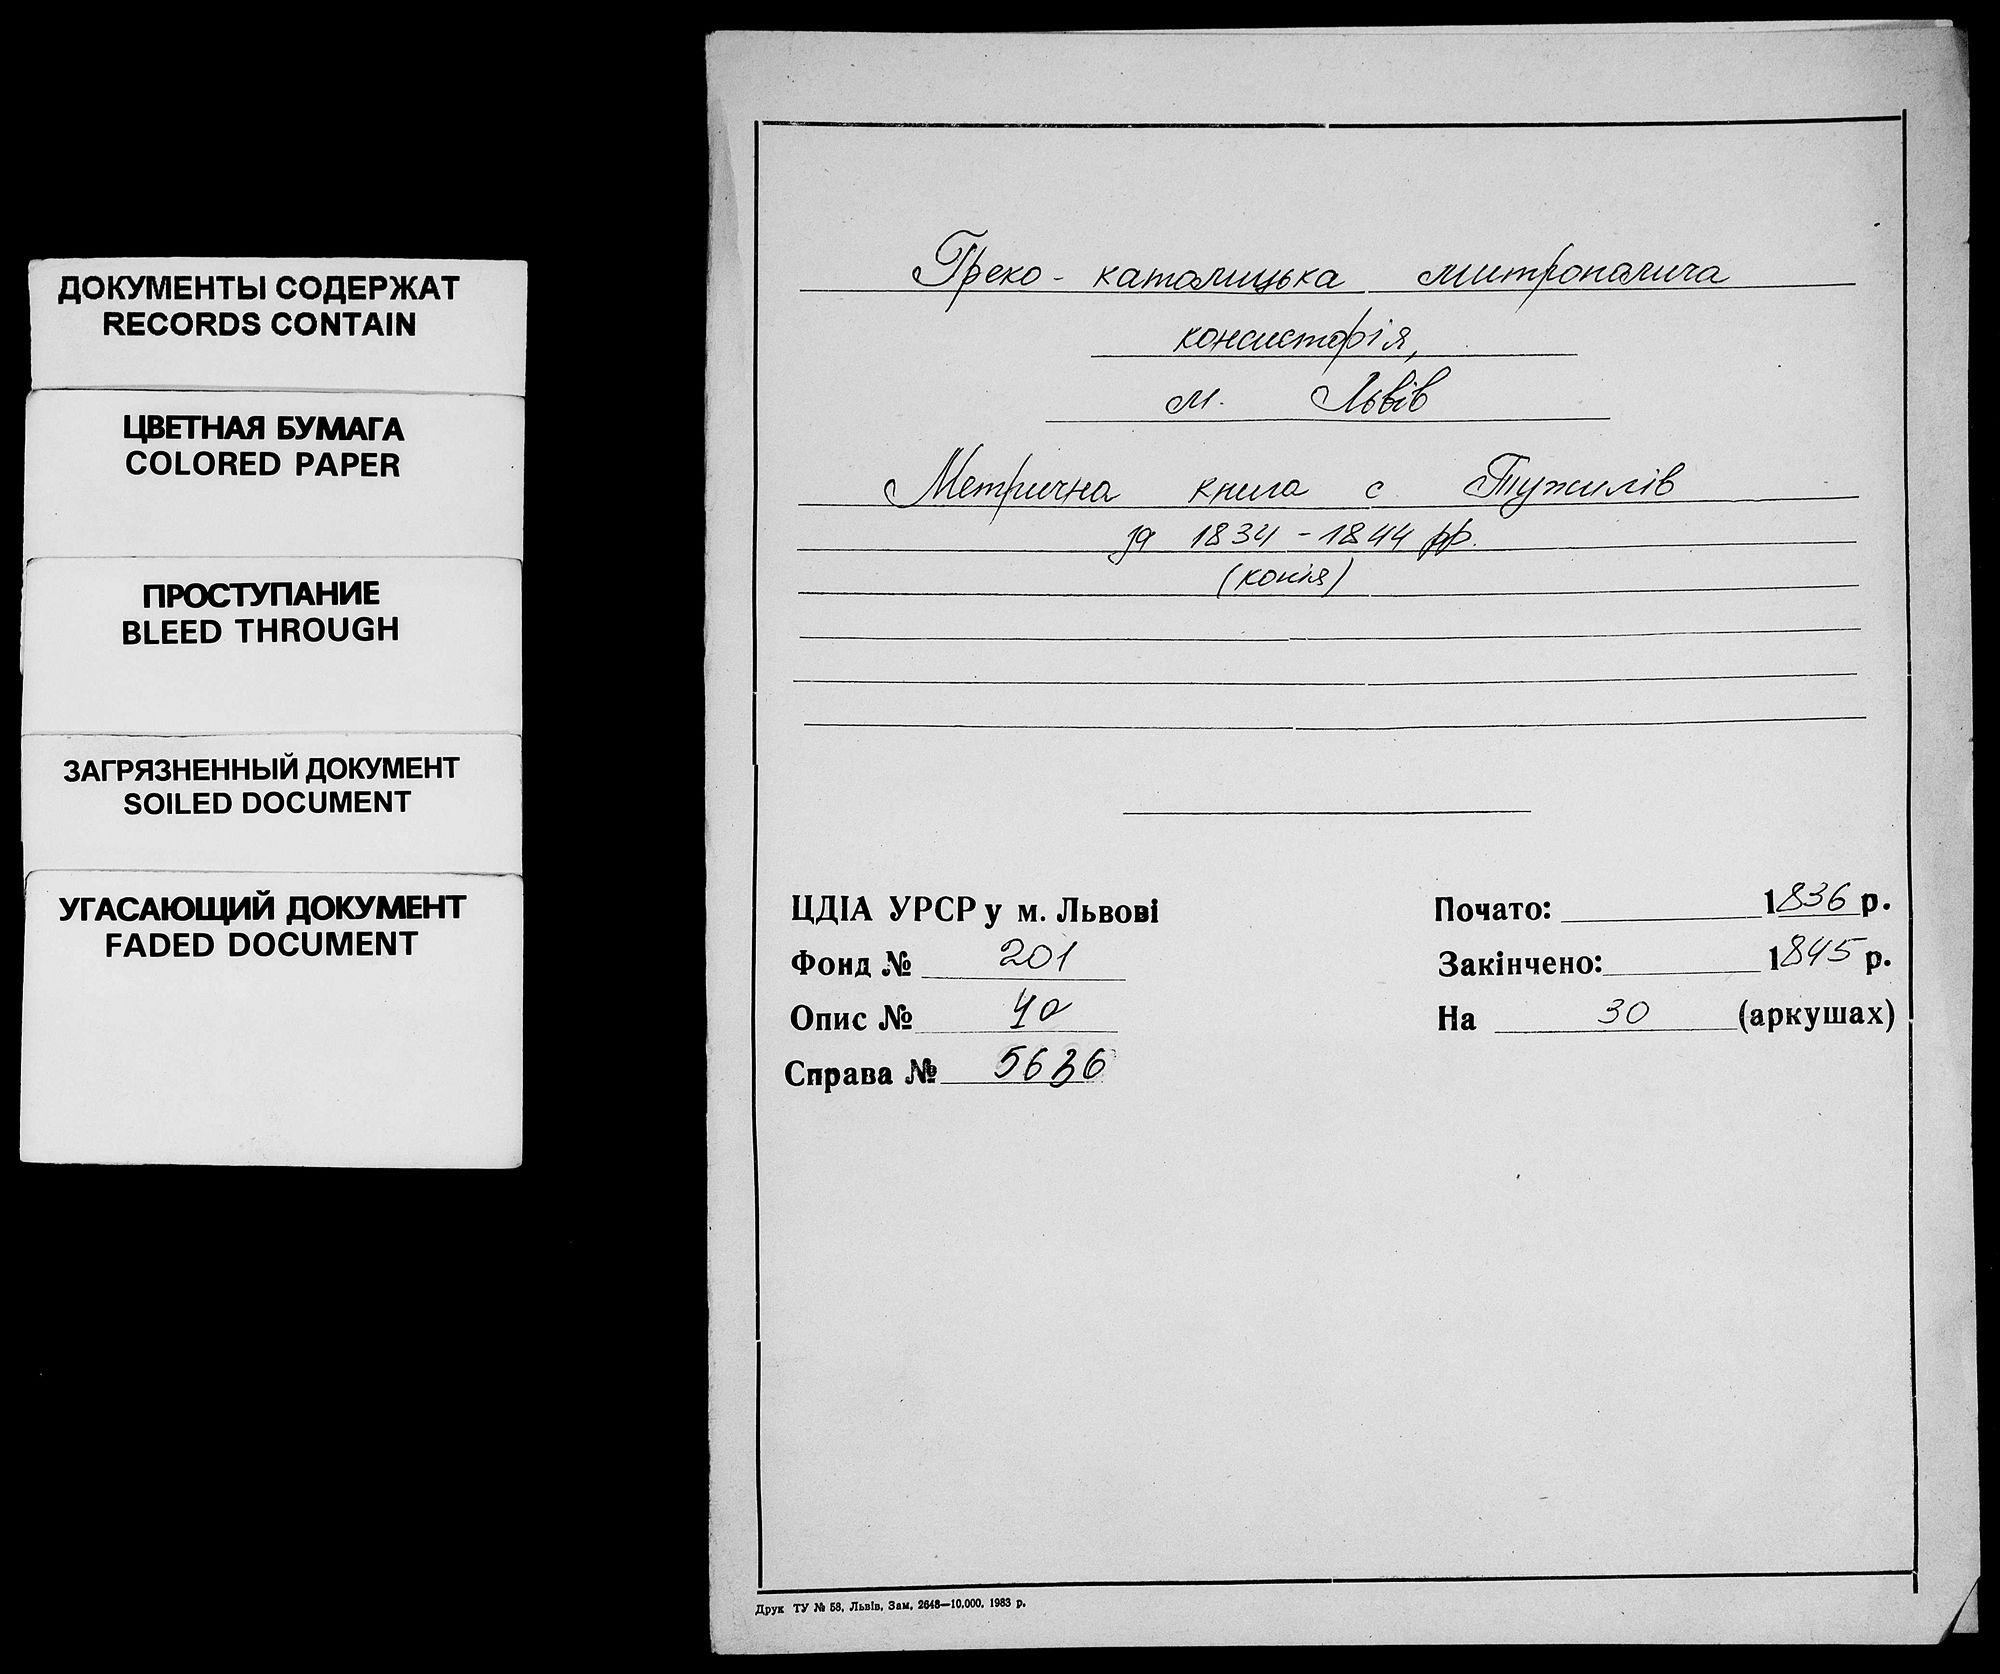 ДОКУМЕНТЫ СОДЕРЖАТ
RECORDS CONTAIN
ЦВЕТНАЯ БУМАГА
COLORED PAPER
ПРОСТУПАНИЕ
BLEED THROUGH
ЗАГРЯЗНЕННЫЙ ДОКУМЕНТ
SOILED DOCUMENT
УГАСАЮЩИЙ ДОКУМЕНТ
FADED DOCUMENT
Греко-католицька митрополича
консисторія,
м. Львів
Метрична книга с Тужилів
за 1834-1844 рр.
(копія)
ЦДІА УРСР у м. Львові
Фонд № 201
Опис № 4а
Справа № 5636
Почато: 1836 р.
Закінчено: 1845 р.
На 30 (аркушах)
Друк ТУ № 58, Львів, Зам. 2648—10.000. 1983 р.